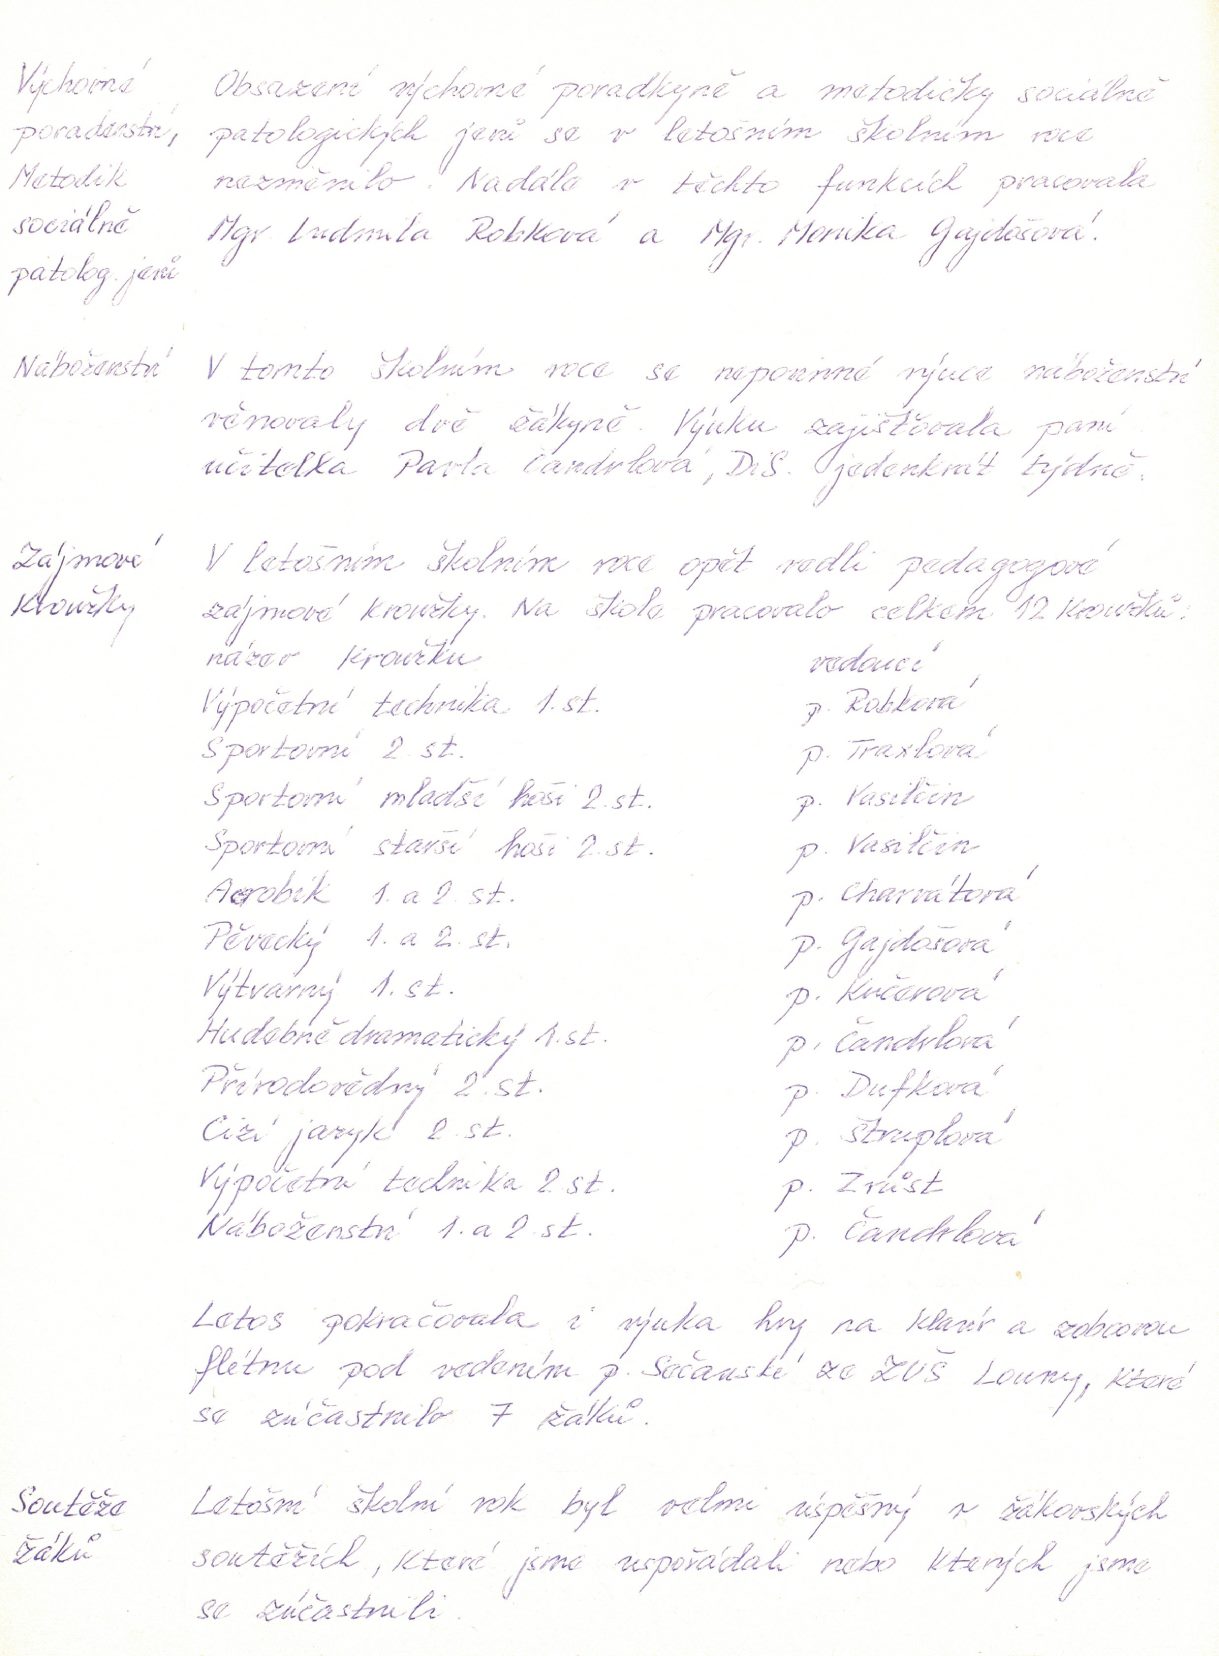 Výchovné
poradenství,
Metodik
sociálně
patolog. jevů
Obsazení výchovné poradkyně a metodičky sociálně
patologických jevů se v letošním školním roce
nezměnilo. Nadále v těchto funkcích pracovala
Mgr. Ludmila Robková a Mgr. Monika Gajdošová.
Náboženství
V tomto školním roce se nepovinné výuce náboženství
věnovaly dvě žákyně. Výuku zajišťovala paní
učitelka Pavla Čandrlová, DiS. jedenkrát týdně.
Zájmové
kroužky
V letošním školním roce opět vedli pedagogové
zájmové kroužky. Na škole pracovalo celkem 12 kroužků:
název kroužku vedoucí
Výpočetní technika 1. st. p. Robková
Sportovní 2. st. p. Traxlová
Sportovní mladší hoši 2. st. p. Vasilčin
Sportovní starší hoši 2. st. p. Vasilčin
Aerobik 1. a 2. st. p. Charvátová
Pěvecký 1. a 2. st. p. Gajdošová
Výtvarný 1. st. p. Kučerová
Hudebně dramatický 1. st. p. Čandrlová
Přírodovědný 2. st. p. Dufková
Cizí jazyk 2. st. p. Štruplová
Výpočetní technika 2. st. p. Zrůst
Náboženství 1. a 2. st. p. Čandrlová
Letos pokračovala i výuka hry na klavír a zobcovou
flétnu pod vedením p. Sečanské ze ZUŠ Louny, které
se zúčastnilo 7 žáků.
Soutěže
žáků
Letošní školní rok byl velmi úspěšný v žákovských
soutěžích, které jsme uspořádali nebo kterých jsme
se zúčastnili.